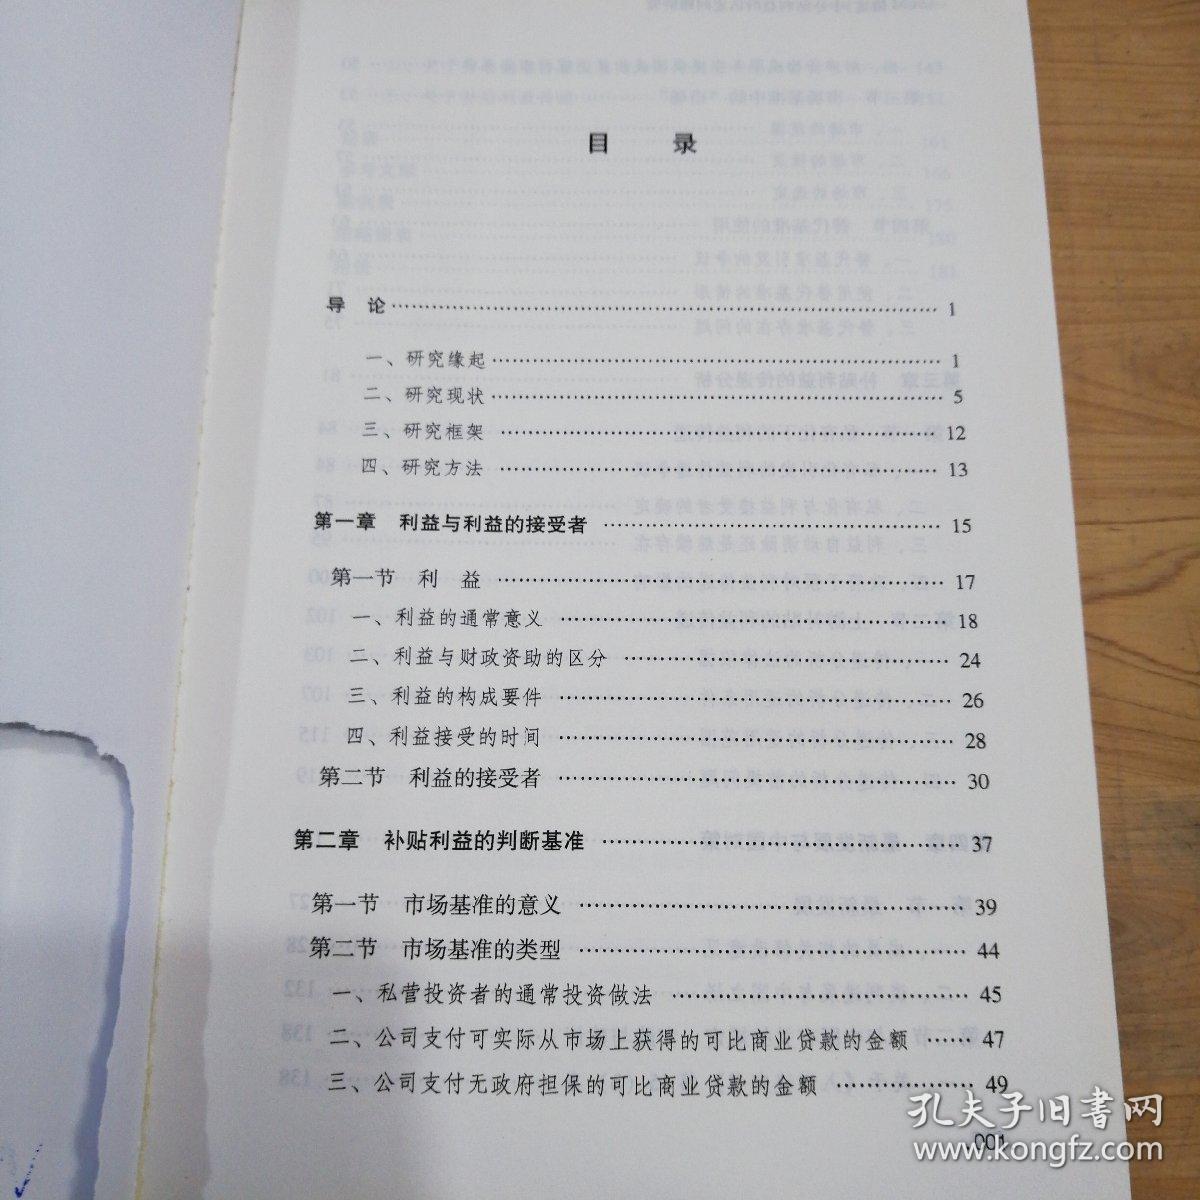 目 录
导 论 …… 1
一、研究缘起 …… 1
二、研究现状 …… 5
三、研究框架 …… 12
四、研究方法 …… 13
第一章 利益与利益的接受者 …… 15
第一节 利 益 …… 17
一、利益的通常意义 …… 18
二、利益与财政资助的区分 …… 24
三、利益的构成要件 …… 26
四、利益接受的时间 …… 28
第二节 利益的接受者 …… 30
第二章 补贴利益的判断基准 …… 37
第一节 市场基准的意义 …… 39
第二节 市场基准的类型 …… 44
一、私营投资者的通常投资做法 …… 45
二、公司支付可实际从市场上获得的可比商业贷款的金额 …… 47
三、公司支付无政府担保的可比商业贷款的金额 …… 49
001
孔夫子旧书网
www.kongfz.com